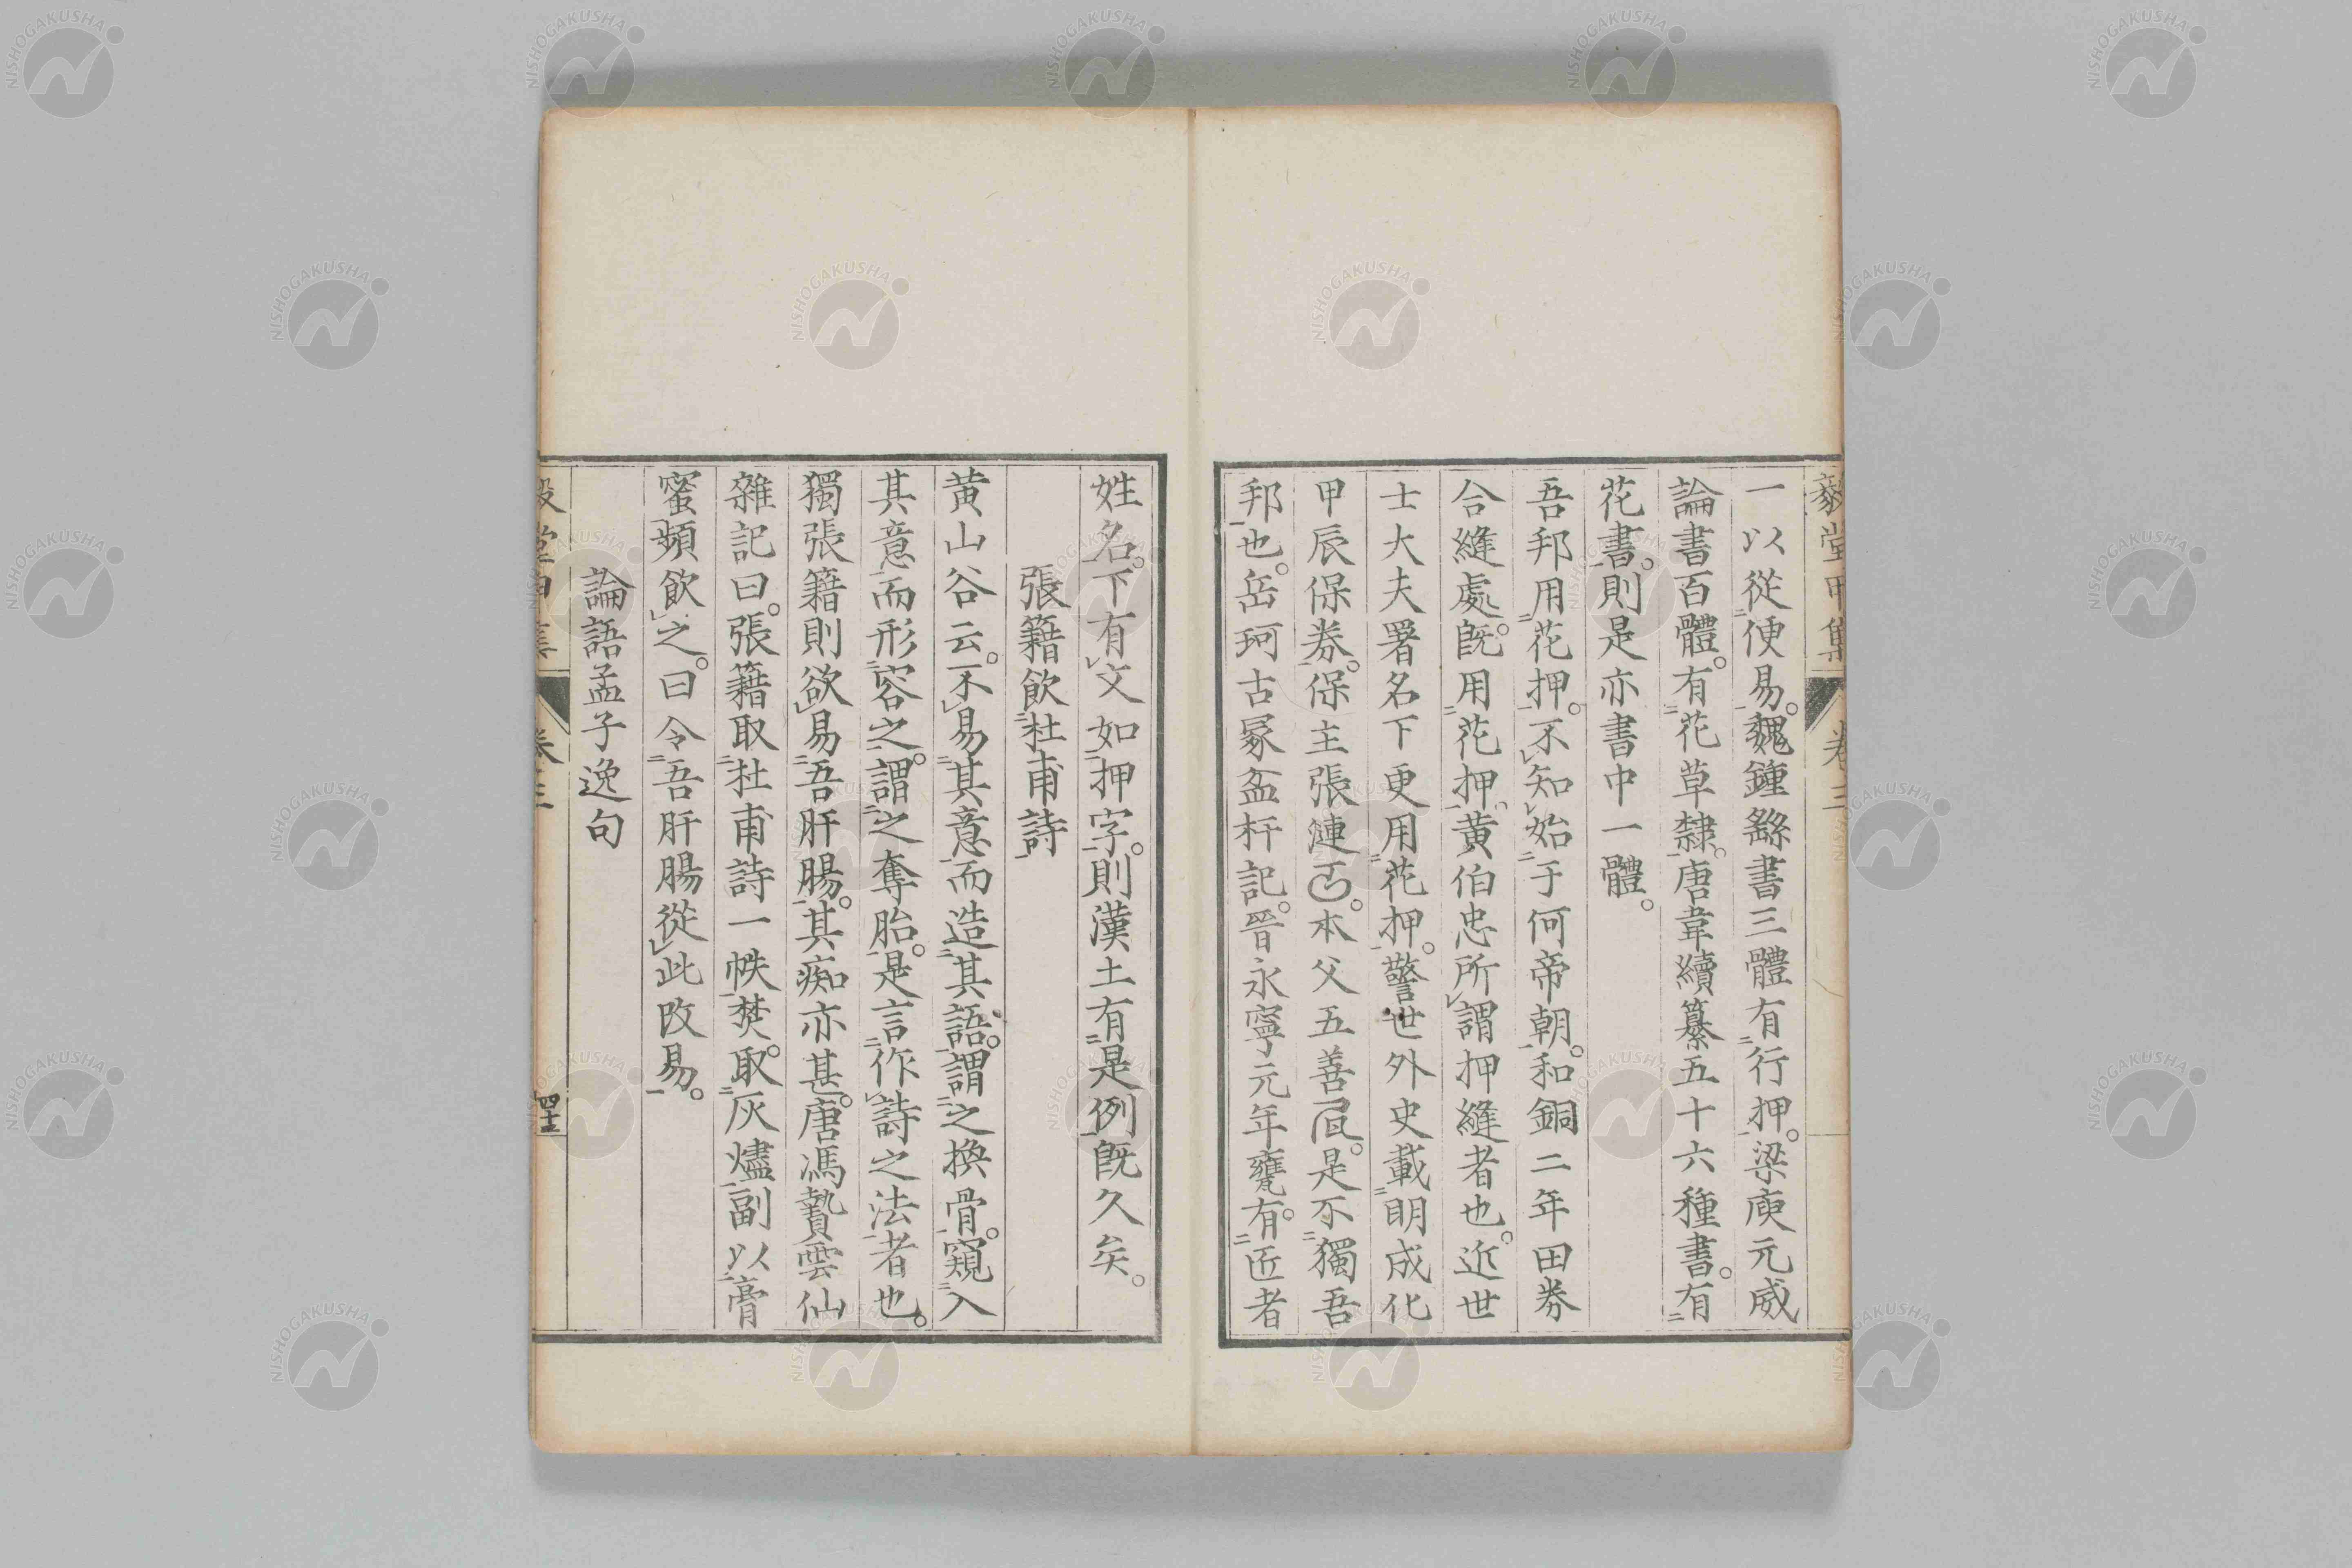 毅堂甲集 卷三
一以從便易。魏鍾繇書三體有行押。梁庾元威
論書百體。有花草隸。唐韋續纂五十六種書。有
花書。則是亦書中一體。
吾邦用花押。不知始于何帝朝。和銅二年田券
合縫處。既用花押。黃伯忠所謂押縫者也。近世
士大夫署名下更用花押。警世外史載明成化
甲辰保券。保主張漣。本父五善。是不獨吾
邦也。岳珂古冢盆杅記。晉永寧元年甕有。匠者
姓名。下有文如押字。則漢土有是例既久矣。
張籍飲杜甫詩
黃山谷云。不易其意而造其語。謂之換骨。窺入
其意而形容之。謂之奪胎。是言作詩之法者也。
獨張籍則欲易吾肝腸。其痴亦甚。唐馮贄雲仙
雜記曰。張籍取杜甫詩一帙焚。取灰燼副以膏
蜜頻飲之。曰令吾肝腸從此改易。
論語孟子逸句
毅堂甲集 卷三 四十三
NISHOGAKUSHA